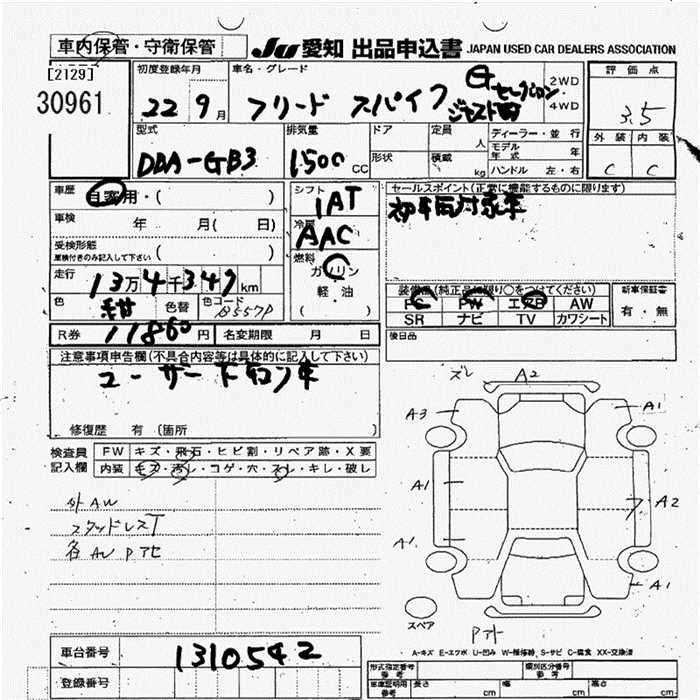 車内保管・守衛保管
JU 愛知 出品申込書 JAPAN USED CAR DEALERS ASSOCIATION
[2129]
30961
初度登録年月
22 9 月
車名・グレード
フリード スパイク
2WD
4WD
評価点
3.5
外装 内装
C C
型式
DBA-GB3
排気量
1500 CC
ドア
形状
定員
人
積載
kg
ディーラー・並行
モデル年式 年
ハンドル 左・右
車歴
自家用・( )
車検
年 月( 日)
受検形態
車検付きのみ記入して下さい
( )
走行
13万4千347km
色
紺
色替
色コード
B557P
R券 11860円 名変期限 月 日
シフト
1AT
冷房
AAC
燃料
ガソリン
軽油
( )
セールスポイント(正常に機能するものに限ります)
装備品(純正品に限り○をつけてください)
PS PW エアB AW
SR ナビ TV カワシート
新車保証書
有・無
後日品
注意事項申告欄(不具合内容等は具体的に記入して下さい)
ユーザー下取り車
修復歴 有(箇所
検査員
記入欄
FW キズ・飛石・ヒビ割・リペア跡・X要
内装 キズ・汚レ・コゲ・穴・スレ・キレ・破レ
外AW
スタッドレスT
ズレ A2
A3 A1
A1 A2
A1
A1
スペア
A-キズ E-エクボ U-凹み W-補修跡 S-サビ C-腐食 XX-交換済
車台番号
1310542
登録番号
形式指定番号
参考
類別区分番号
参考
車庫証明用
参考
長さ cm 幅 cm 高さ cm